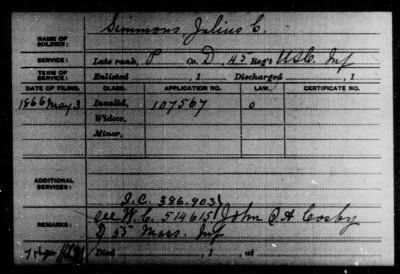 NAME OF SOLDIER: Simmons, Julius C.
SERVICE: Late rank, P Co. D, 45 Reg't U S C. Inf
TERM OF SERVICE: Enlisted , 1 Discharged , 1
DATE OF FILING. CLASS. APPLICATION NO. LAW. CERTIFICATE NO.
1866 May 3 Invalid, 107567 O
Widow,
Minor,
ADDITIONAL SERVICES:
I.C. 386.903
REMARKS: W.C. 514615 John A Cosby
D 55 Mass. Inf
Died , 1 , at